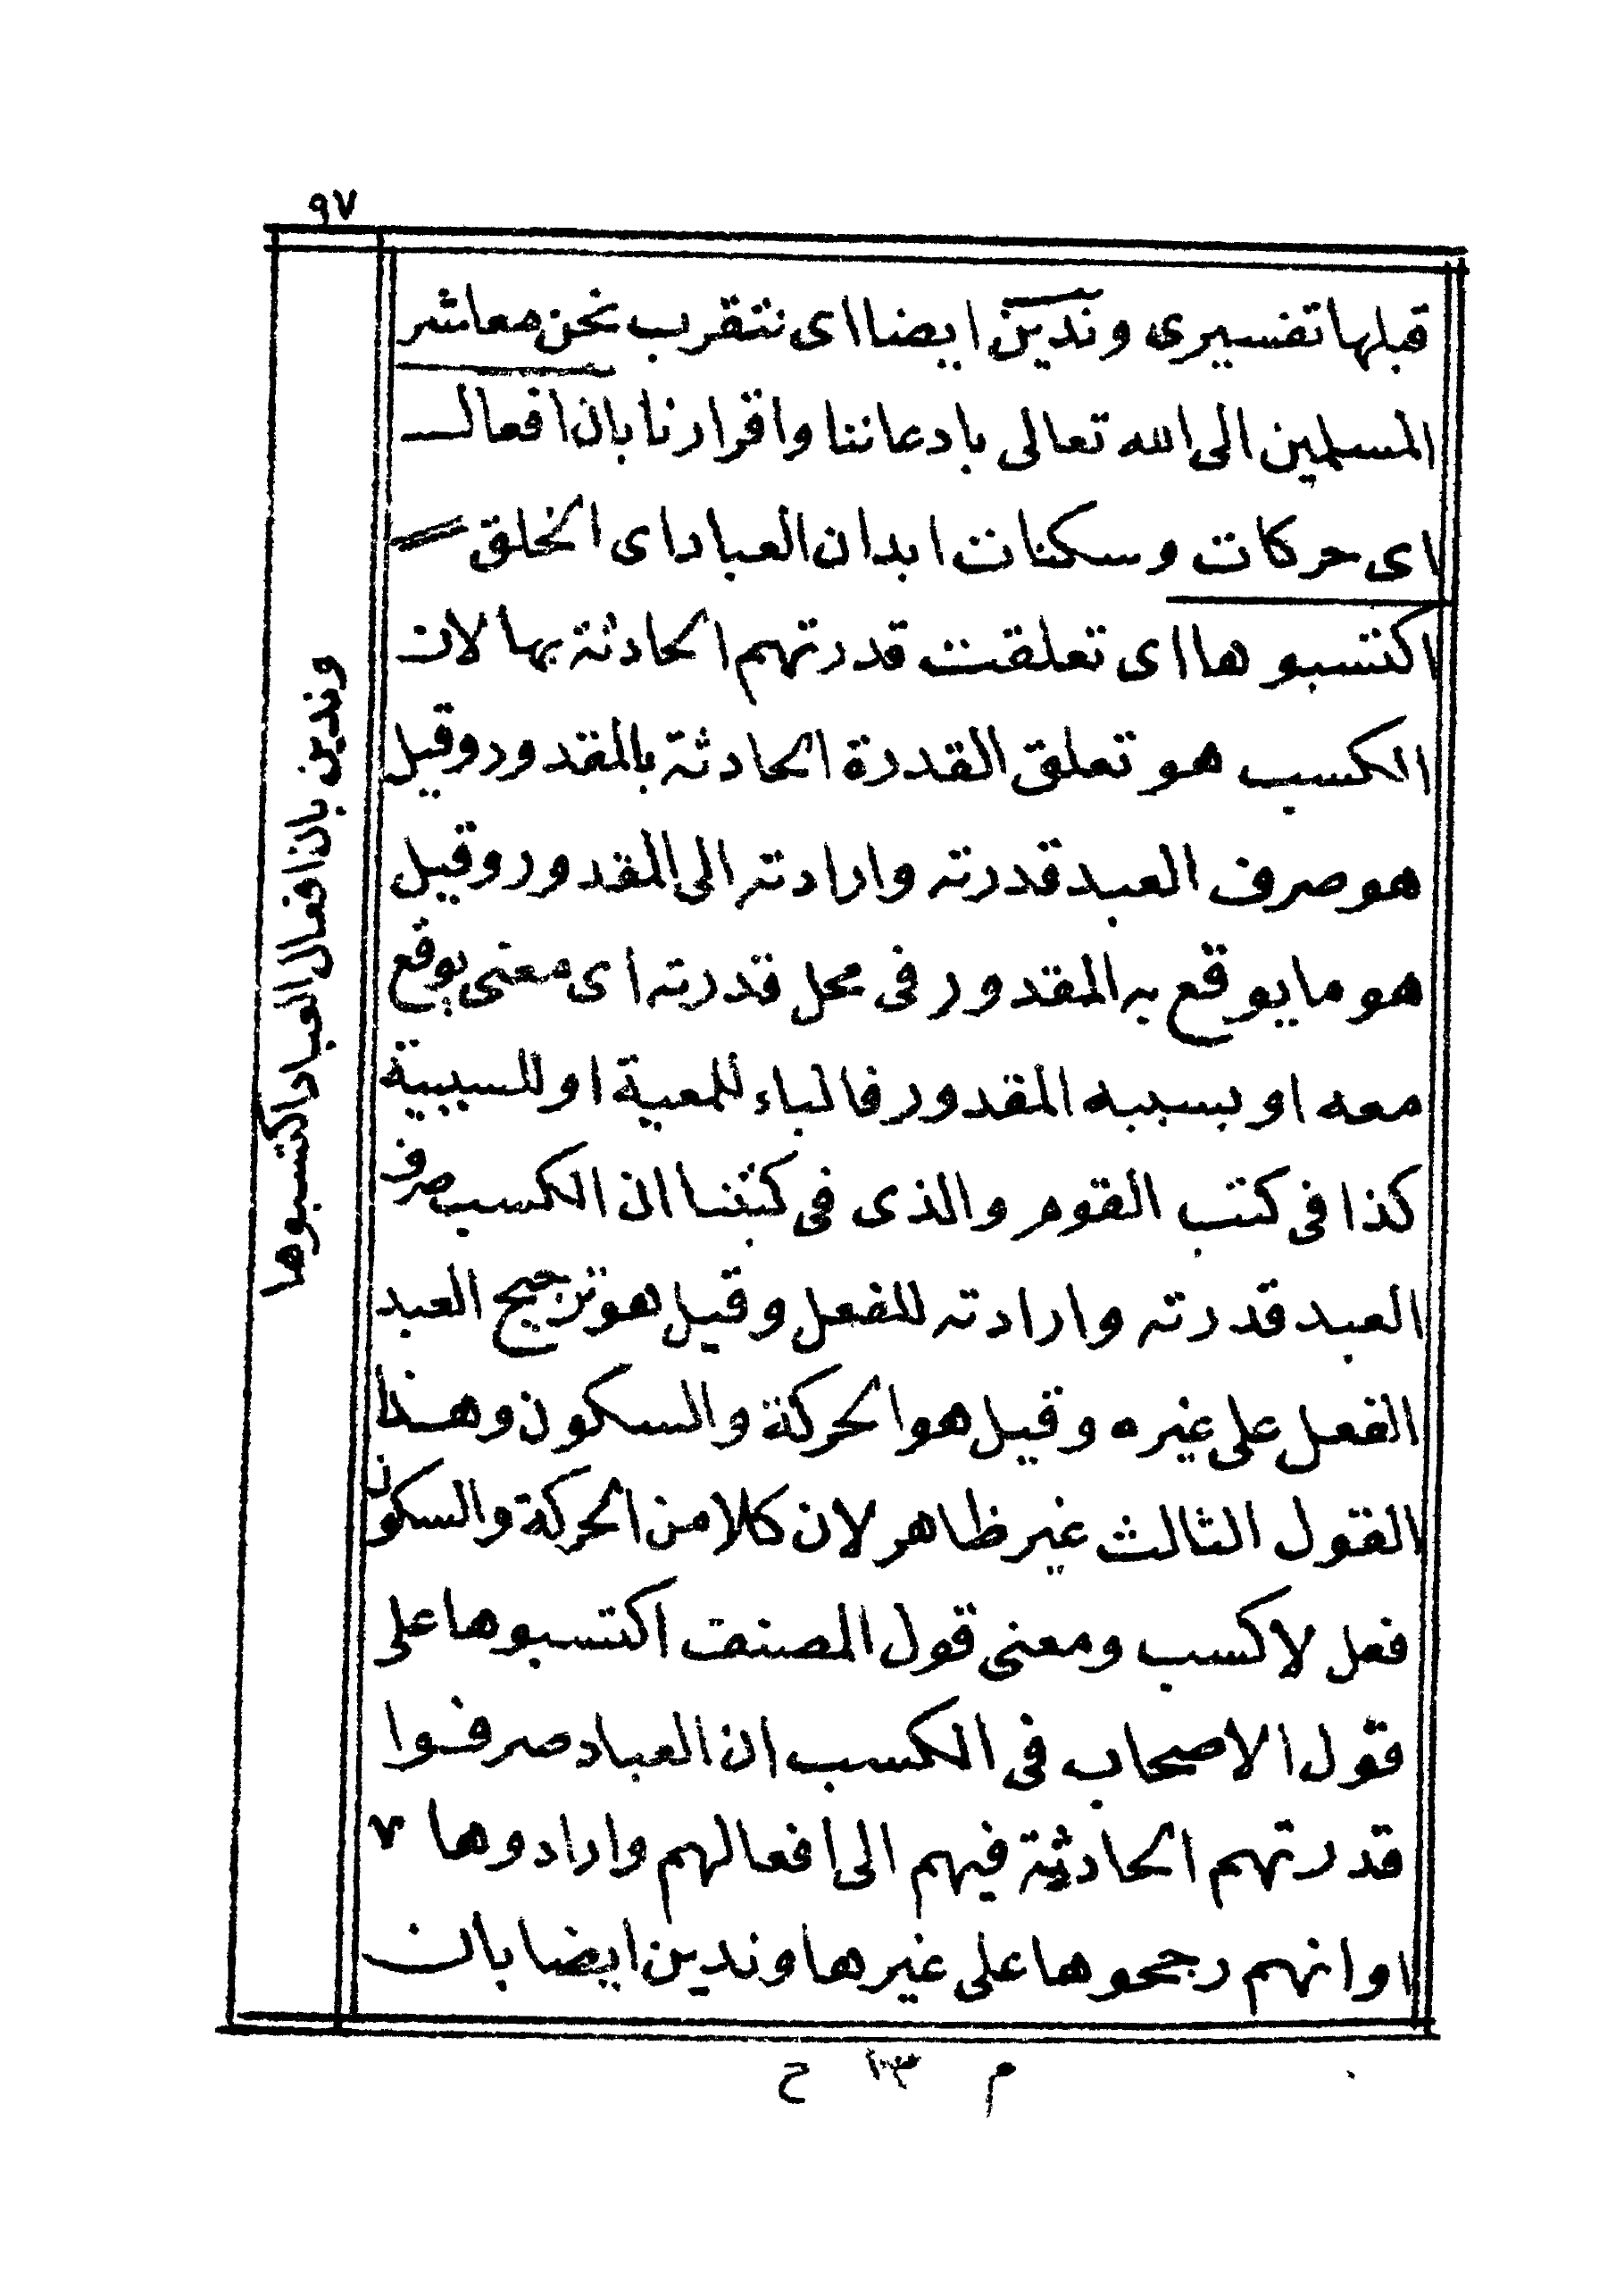 ٩٧
قبلها تفسيرى وندين ايضا اى نتقرب نحن معاشر
المسلمين الى الله تعالى بادعاننا واقرارنا بان افعال
اى حركات وسكنات ابدان العباد اى الخلق
اكتسبوها اى تعلقت قدرتهم الحادثة بها لان
الكسب هو تعلق القدرة الحادثة بالمقدور وقيل
هو صرف العبد قدرته وارادته الى المقدور وقيل
هو ما يوقع به المقدور فى محل قدرته اى معنى يوقع
معه او بسببه المقدور فالباء للمعية او للسببية
كذا فى كتب القوم والذى فى كتبنا ان الكسب صرف
العبد قدرته وارادته للفعل وقيل هو ترجيح العبد
الفعل على غيره وقيل هو الحركة والسكون وهذا
القول الثالث غير ظاهر لان كلا من الحركة والسكون
فعل لا كسب ومعنى قول المصنف اكتسبوها على
قول الاصحاب فى الكسب ان العباد صرفوا
قدرتهم الحادثة فيهم الى افعالهم وارادوها ٧
او انهم رجحوها على غيرها وندين ايضا بان
وندين بان افعال العباد اكتسبوها
م ١٣ ح